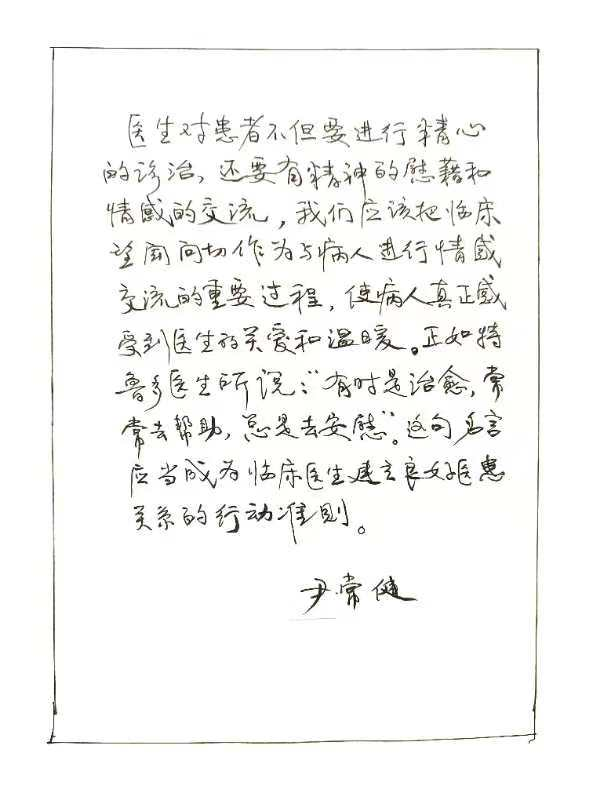 医生对患者不但要进行精心
的诊治，还要有精神的慰藉和
情感的交流，我们应该把临床
望闻问切作为与病人进行情感
交流的重要过程，使病人真正感
受到医生的关爱和温暖。正如特
鲁多医生所说：“有时是治愈，常
常去帮助，总是去安慰”。这句名言
应当成为临床医生建立良好医患
关系的行动准则。
尹常健